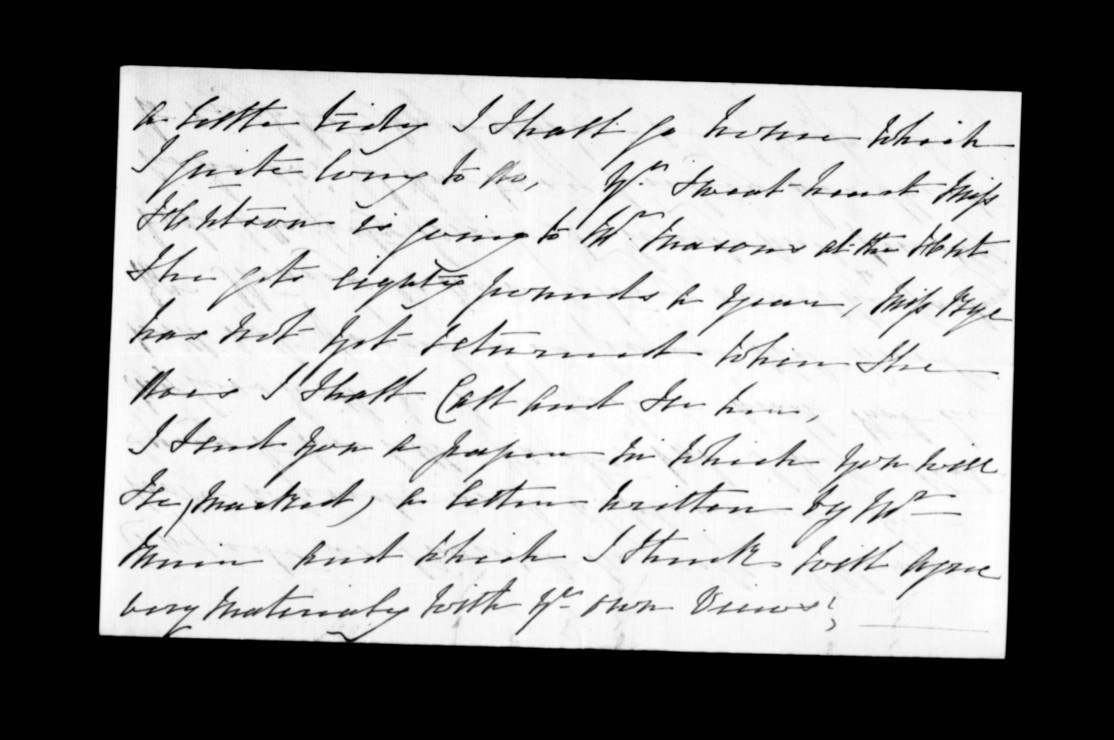 a little tidy I shall go home which
I quite long to do, Yr. Sweet heart Miss
is going to Mr. Masons at the Hutt
She gets eighty pounds a year, Miss Rye
has not yet returned when she
does I shall Call and see her,
I send you a paper in which you will
see, (marked) a letter written by Mr
and which I think will agree
very materialy with yr own views;